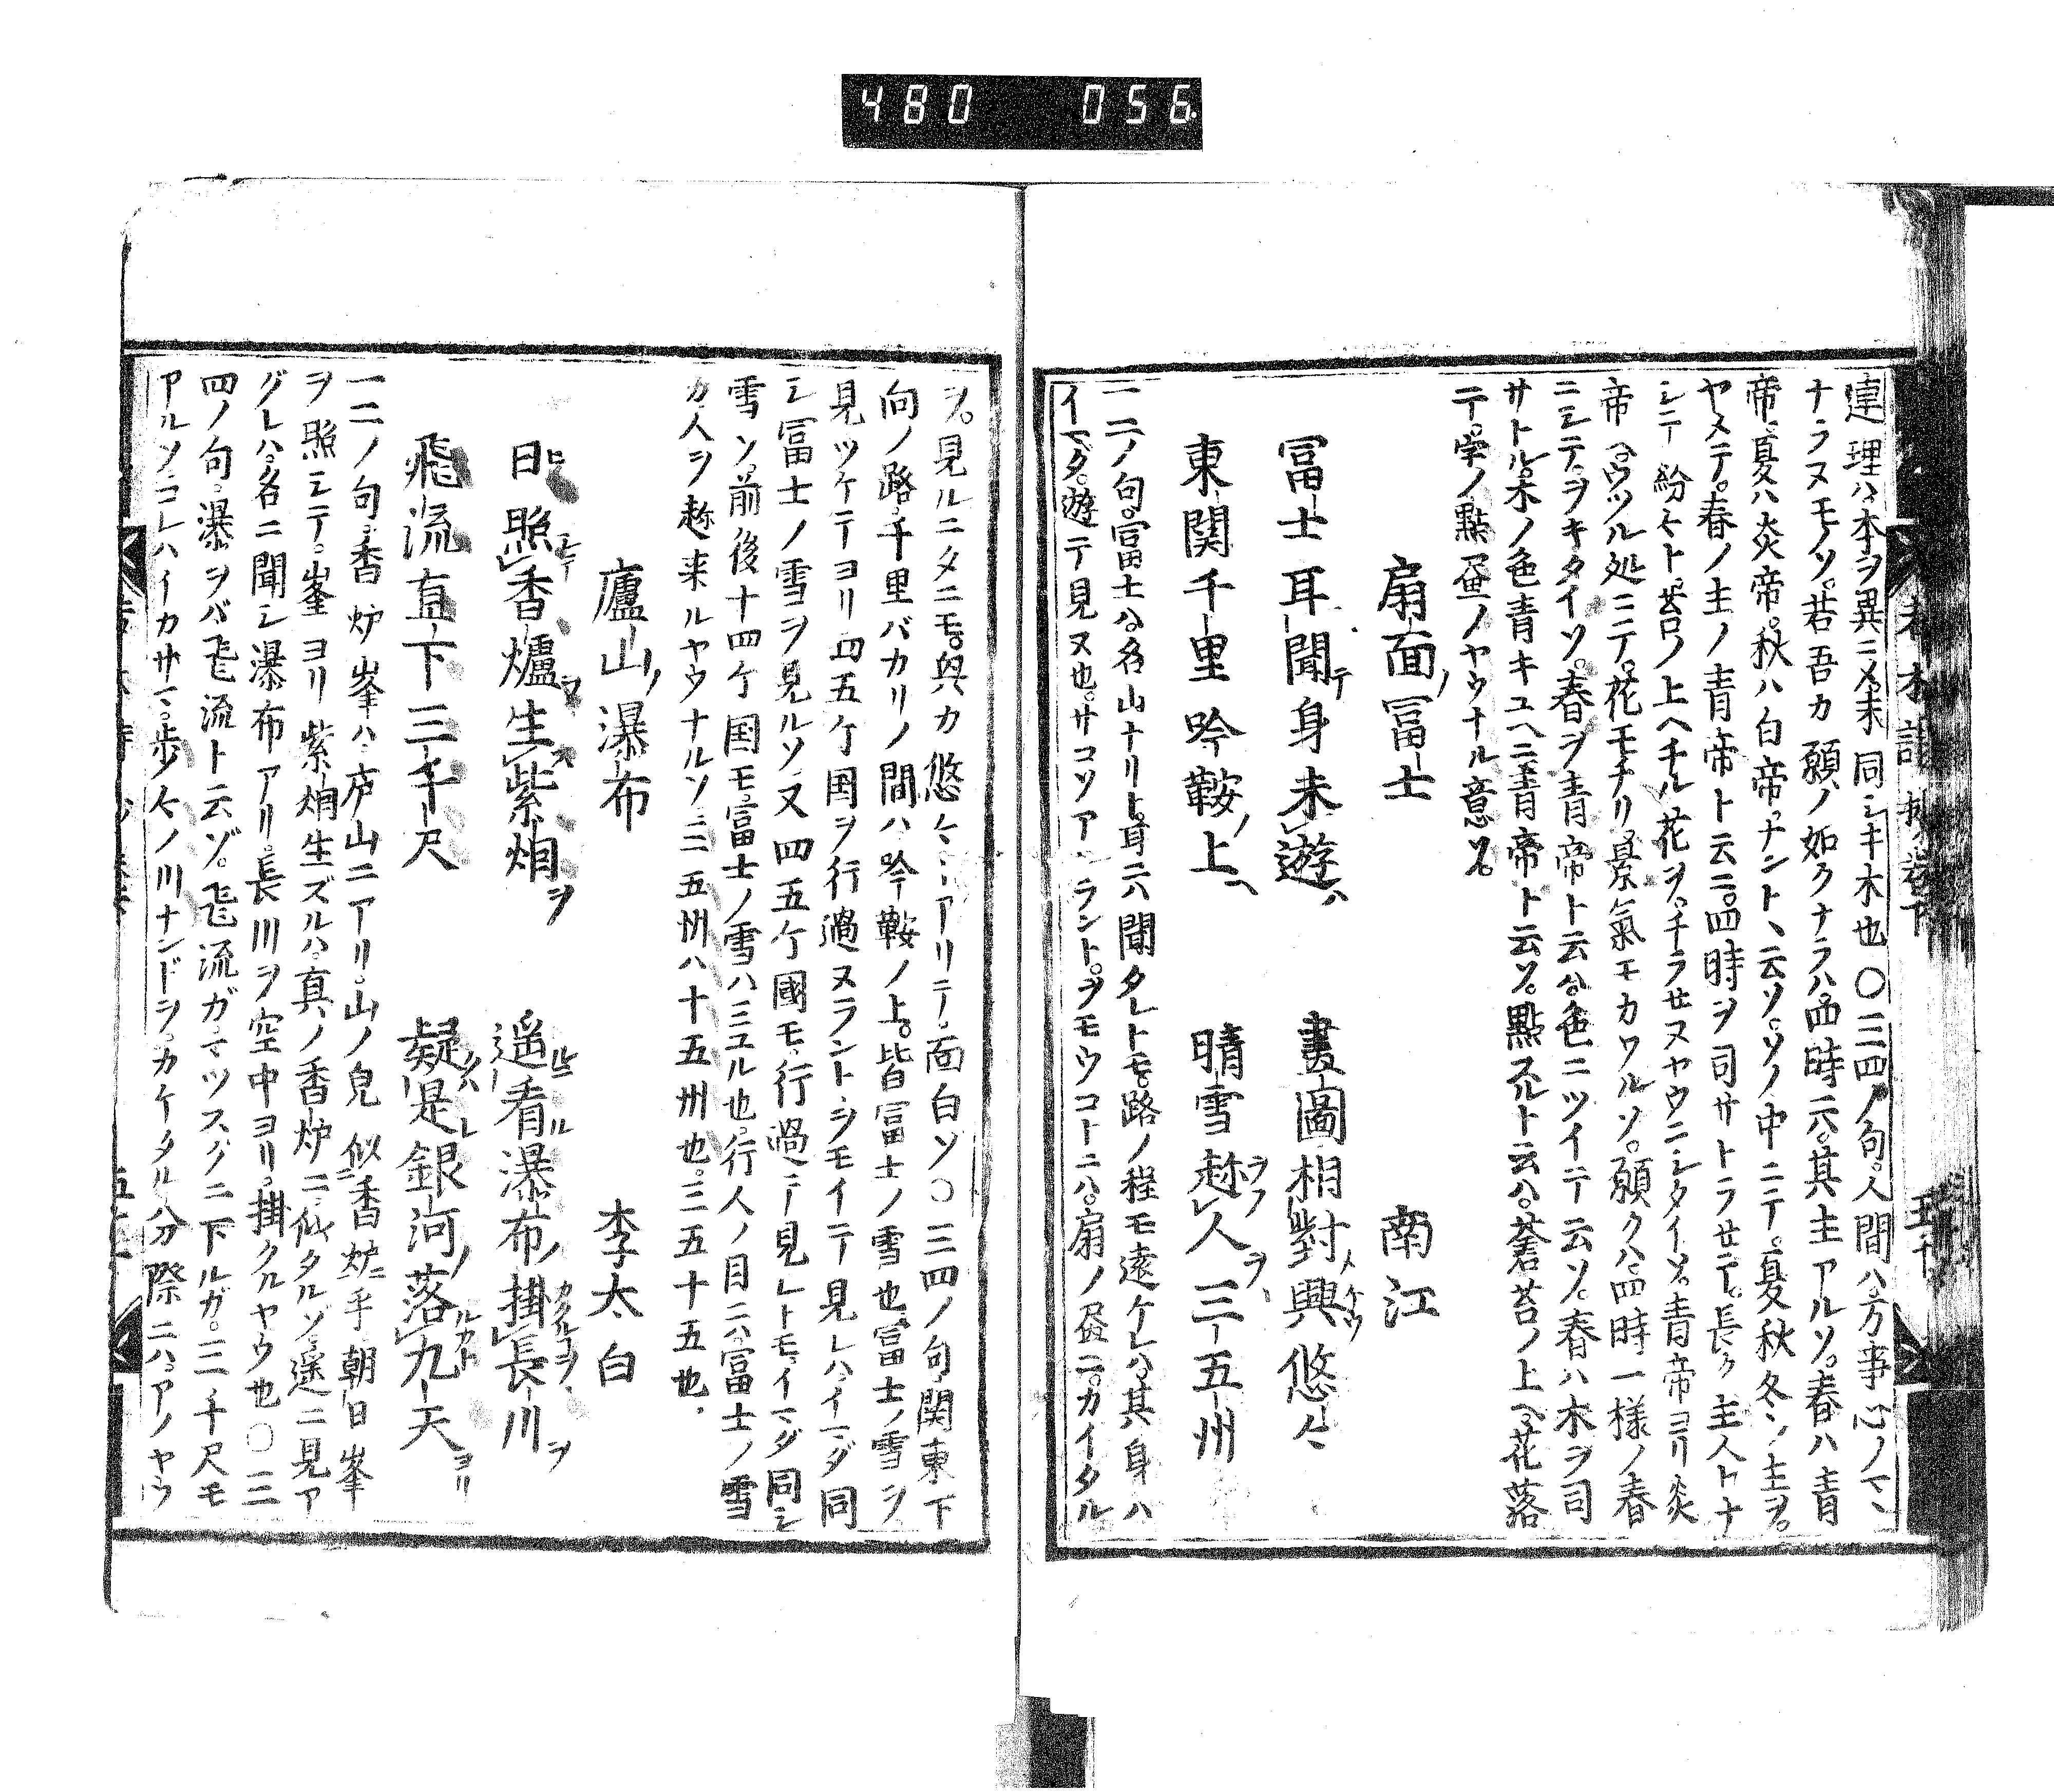 480 056
連理ハ本ヲ異ニメ末同シキ木也〇三四ノ句人間ハ万事心ノマヽ
ナラヌモノソ若吾カ願ノ如クナラハ四時ニハ其主アルソ春ハ青
帝夏ハ炎帝秋ハ白帝ナントヽ云ソソノ中ニテ夏秋冬ノ主ヲ
ヤメテ春ノ主ノ青帝ト云ニ四時ヲ司サトラセテ長ク主人トナ
シテ紛々ト苔ノ上ヘチル花ヲチラセヌヤウニシタイソ青帝ヨリ炎
帝ヘウツル処ニテ花モチリ景氣モカワルソ願クハ四時一様ノ春
ニシテヲキタイソ春ヲ青帝ト云ハ色ニツイテ云ソ春ハ木ヲ司
サトル木ノ色青キユヘニ青帝ト云ソ點スルト云ハ蒼苔ノ上ヘ花落
テ字ノ點畫ノヤウナル意ソ
扇面ノ冨士 南江
冨士耳聞テ身未遊ハ 畫圖相對メ興ケウ悠々
東関千里吟鞍ノ上ヘ 晴雪趂ヲフ人ヲ三五州
一二ノ句冨士ハ名山ナリト耳ニハ聞タレトモ路ノ程モ遠ケレハ其身ハ
イマダ遊テ見ヌ也サコソアラントヲモウコトニハ扇ノ畫ニカイタル
ヲ見ルニタニモ與カ悠々トアリテ面白ソ〇三四ノ句関東下
向ノ路千里バカリノ間ハ吟鞍ノ上皆冨士ノ雪也冨士ノ雪ヲ
見ツケテヨリ四五ケ国ヲ行過ヌラントヲモイテ見レハイマダ同
シ冨士ノ雪ヲ見ルソ又四五ケ國モ行過テ見レトモイマダ同シ
雪ソ前後十四ケ国モ冨士ノ雪ハミユル也行人ノ目ニハ冨士ノ雪
カ人ヲ趂来ルヤウナルソ三五州ハ十五州也三五十五也
廬山ノ瀑布 李太白
日ヒ照シテ香爐ヲ生ス紫烟ヲ 遥看ル瀑布ノ掛カクルコヲ長川ヲ
飛流直下三千尺 疑ハレ是銀河ノ落ルカト九天ヨリ
一二ノ句香炉峯ハ庐山ニアリ山ノ皃似香炉ニ乎朝日峯
ヲ照シテ峯ヨリ紫烟生ズルハ真ノ香炉ニ似タルゾ遥ニ見ア
グレハ名ニ聞シ瀑布アリ長川ヲ空中ヨリ掛クルヤウ也〇三
四ノ句瀑ヲバ飛流ト云ゾ飛流ガマツスグニ下ルガ三千尺モ
アルソコレハイカサマ歩々ノ川ナンドヲカケタル分際ニハアノヤウ